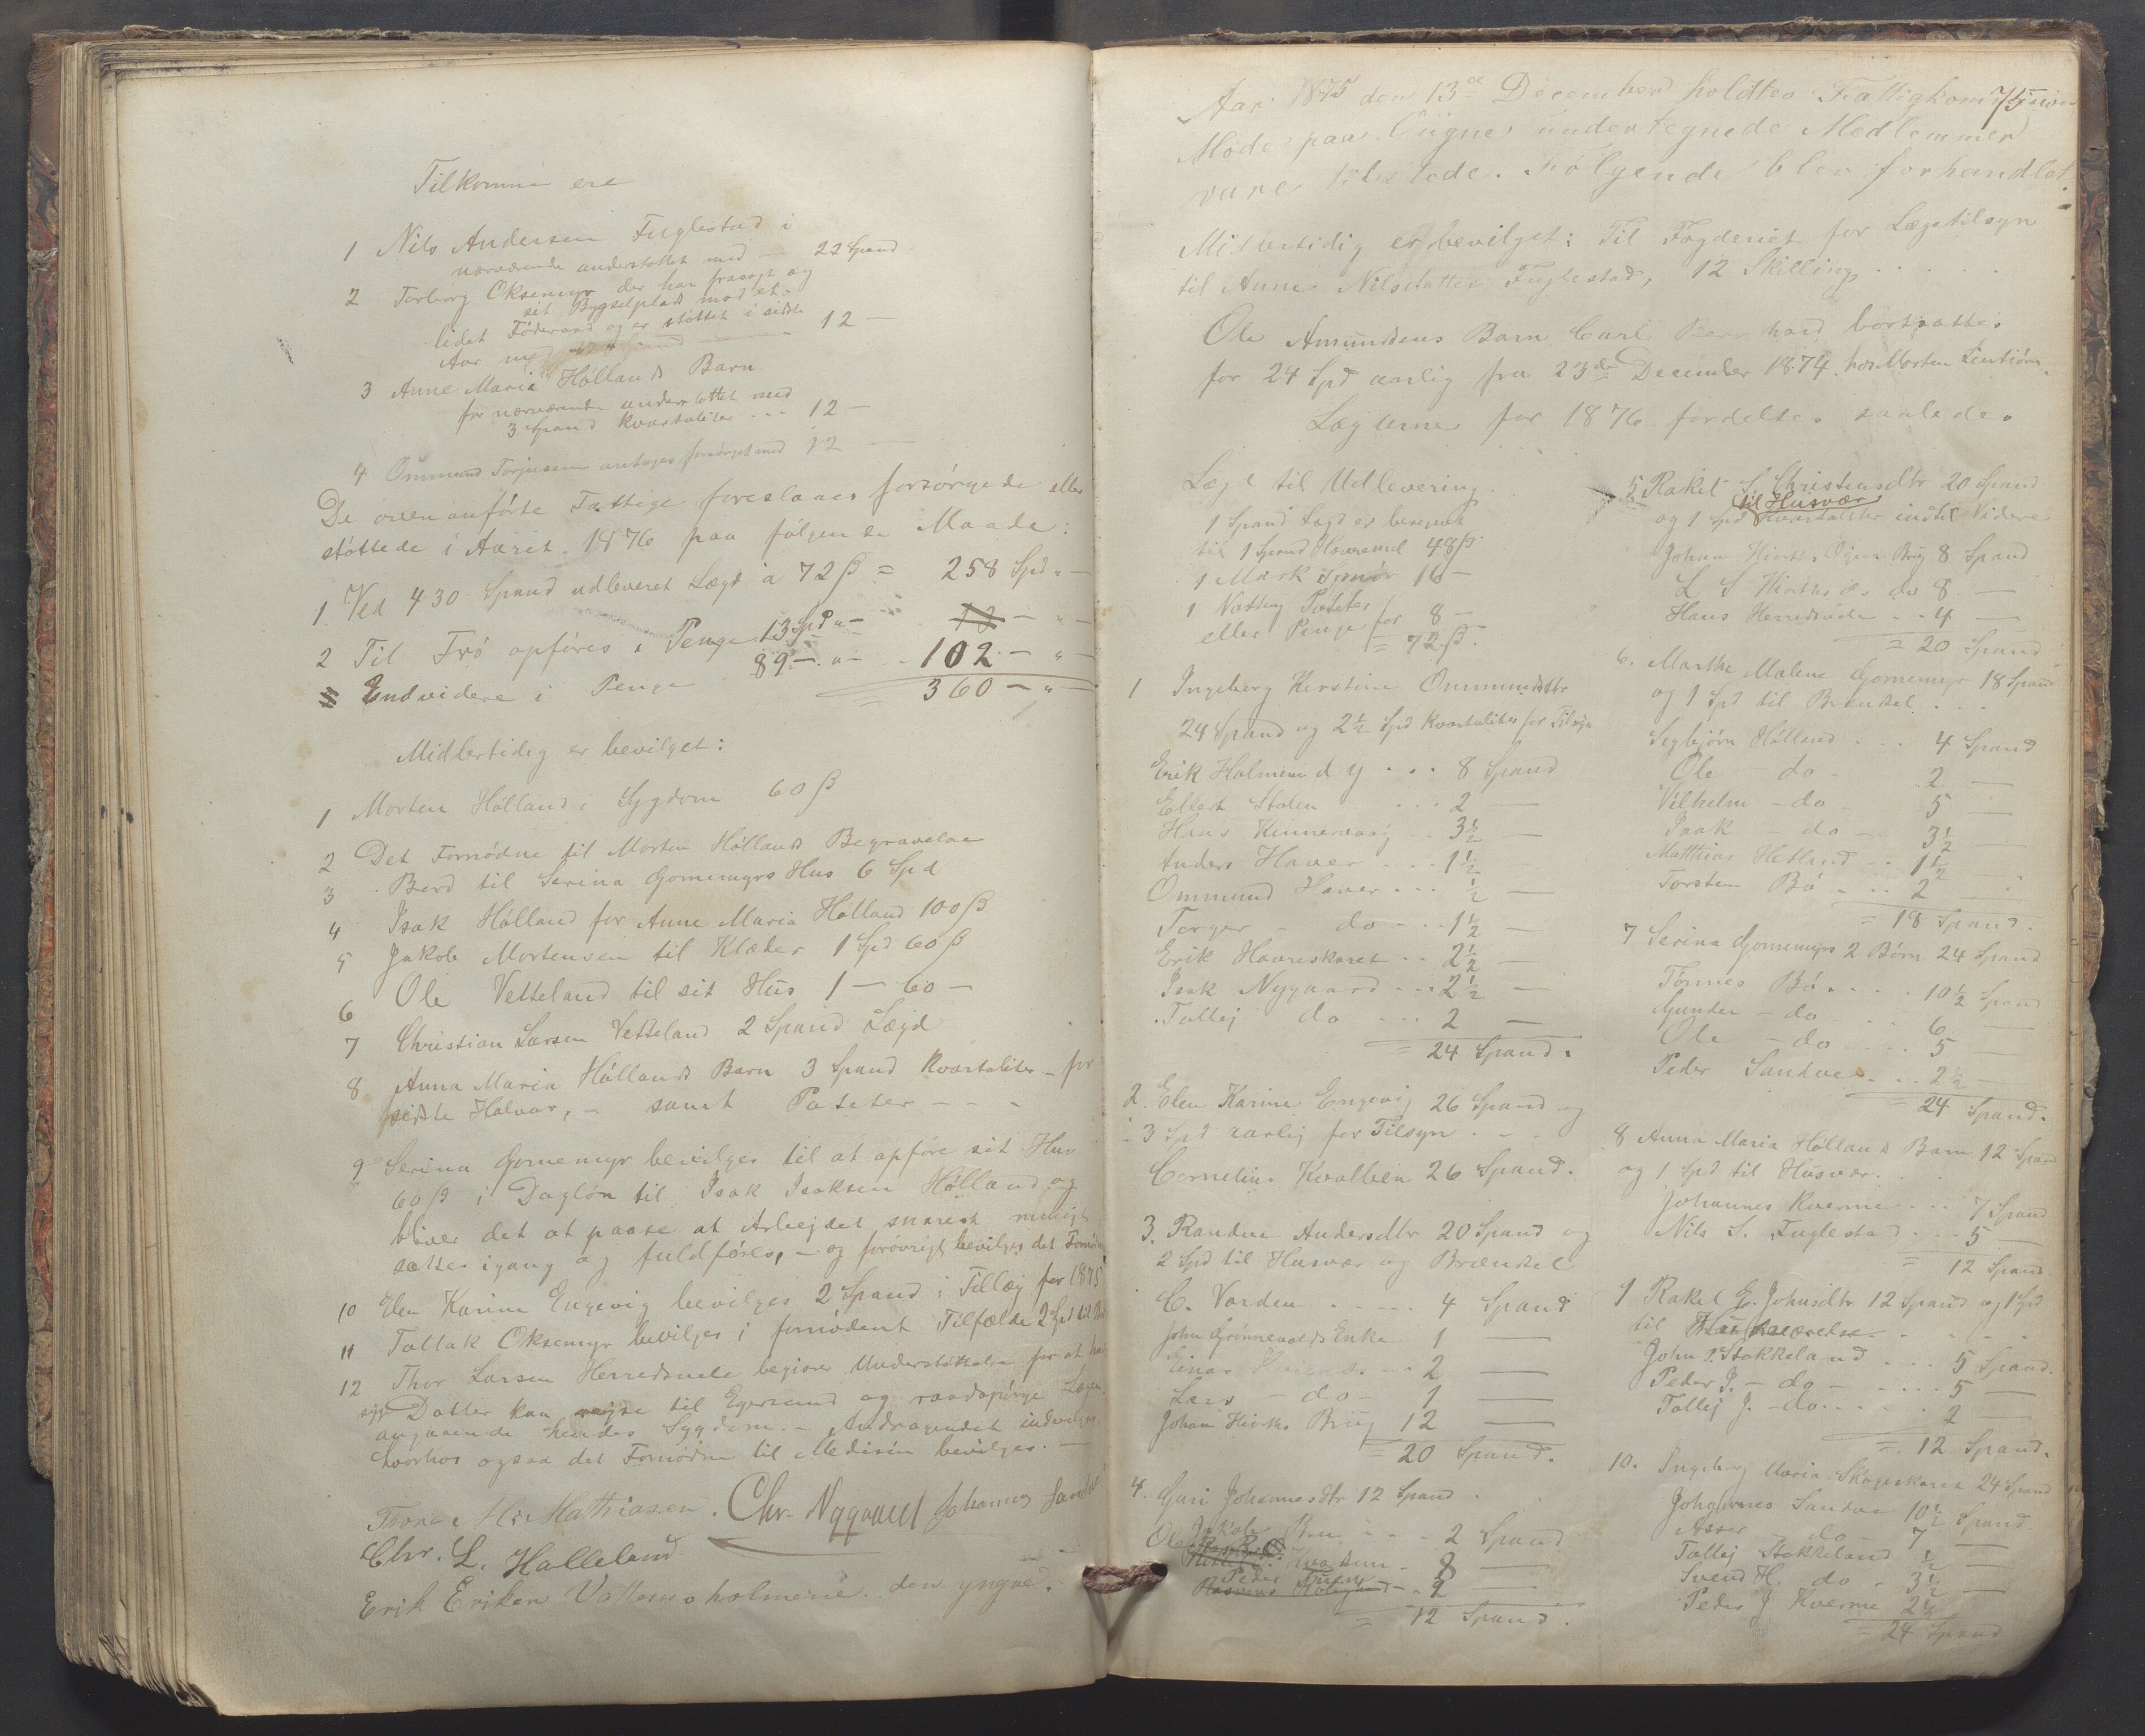 Tilkomne ere
1 Nils Andersen Fuglestad i
nærværende understøttet med — 22 Spand
2 Torborg Oksemyr der har frasagt og
sit Bygselplads mod et
lidet Føderaad og er støttet i sidste
Aar med 12 —
3 Anne Maria Høllands Barn
for nærværende understøttet med
3 Spand kvartaliter - - - 12 —
4 Ommund Torjussen antages forsørget med 12 —
De ovenanførte Fattige foreslaaes forsørgede eller
støttede i Aaret 1876 paa følgende Maade:
1. Ved 430 Spand udleveret Lægd a 72 ß = 258 Spd " —
2 Til Frø opføres i Penge 13 Spd " — 13 — " —
3 Endvidere i Penge 89 — " — 102 — " —
= 360 — " —
Midlertidig er bevilget:
1 Morten Hølland i Sygdom 60 ß
2 Det Fornødne til Morten Høllands Begravelse
3 Bord til Serina Gomemyrs Hus 6 Spd
4 Isak Hølland for Anne Maria Hølland 100 ß
5 Jakob Mortensen til Klæder 1 Spd 60 ß
6 Ole Vetteland til sit Hus 1 — 60 —
7 Christian Larsen Vetteland 2 Spand Lægd
8 Anna Maria Høllands Barn 3 Spand kvartaliter - for
sidste Halvaar, - samt Poteter - - -
9 Serina Gomemyr bevilges til at opføre sit Hus
60 ß i Dagløn til Isak Isaksen Hølland og
bliver det at paase at Arbejdet snarest muligt
sættes igang og fuldføres, - og forøvrigt bevilges det Fornødne
10 Elen Karine Engevig bevilges 2 Spand i Tillæg for 1875
11 Tollak Oksemyr bevilges i fornødent Tilfælde 2 Spd til
12 Thor Larsen Herredsvele begjærer Understøttelse for at hans
syge Datter kan rejse til Egersund og raadspørge Lægen
angaaende hendes Sygdom. - Andragendet indvilges
hvorhos ogsaa det Fornødne til Medisin bevilges. —
Thore M. Mathiasen. Chr. Nygaard Johannes Sandve
Chr. L. Halleland
Erik Eriksen Vattemoholmene den yngre.
75
Aar 1875 den 13de December holdtes Fattigkommission
Møde paa Eiigne undertegnede Medlemmer
vare tilstede. Følgende blev forhandlet
Midlertidig er bevilget: Til Fogderiet for Lægetilsyn
til Anne Nilsdatter Fuglestad, 12 Skilling
Ole Amundsens Barn Carl hand bortsattes
for 24 Spd aarlig fra 23de December 1874 hos Morten
Lægderne for 1876 fordeltes saaledes
Lægd til Udlevering.
1 Spand Lægd er beregnet
til 1 Spand Havremel 48 ß
1 Mark Smør 16 —
1 Notting Poteter
eller Penge for 8 —
= 72 ß.
1 Ingeborg Kirstine Ommundsdtr
24 Spand og 2½ Spd kvartaliter for Tilsyn
Erik Holmene d y . . . 8 Spand
Ellert Stølen . . . 2 —
Hans Kinnervaag . . 3½ —
Anders Haver . . . 1½
Ommund Haver . . . ½ —
Torger - do - - - 1½ —
Erik Havreskaret . . 2½ —
Isak Nygaard . . . 2½ —
Tollej do . . . 2 —
= 24 Spand.
2. Elen Karine Engevig 26 Spand og
3 Spd aarlig for Tilsyn . . .
Cornelius Kvalbein 26 Spand.
3. Randne Andersdtr 20 Spand og
2 Spd til Husvær og Brændsel
C. Varden . . . . . 4 Spand
John Grønnevolds Enke 1 —
Einar . . . 2 —
Lars - do - 1 —
Johan Hiorths Brug 12 —
= 20 Spand.
4. Guri Johannesdtr 12 Spand.
Jakob Bru . . . 2 Spand
8 —
Peder
2 —
= 12 Spand.
5 Rakel S Christensdtr 20 Spand
til Husvær
og 1 Spd kvartaliter indtil Videre
Johan Hiorths Brug 8 Spand
L S Hiorths do 8 —
Hans Herredsvele . . 4 —
= 20 Spand
6. Marthe Malene Gomemyr 18 Spand
og 1 Spd til Brændsel . . .
Segbjørn Hølland . . . 4 Spand
Ole - do - 2 —
Vilhelm - do - 5 —
Isak - do - 3½ —
Matthias Hetland . . 1½
Torsten Bø . . . 2 —
= 18 Spand.
7 Serina Gomemyrs 2 Børn 24 Spand
Tønnes Bø . . . . 10½ Spand
Gunder - do - . . . 6 —
Ole - do . . . 5 —
Peder Sandve . . . 2½ —
= 24 Spand.
8 Anna Maria Høllands Barn 12 Spand
og 1 Spd til Husvær. . .
Johannes Kverme . . . 7 Spand
Nils S. Fuglestad . . . 5 —
= 12 Spand.
9 Rakel E. Johnsdtr 12 Spand og 1 Spd
til Husværelse . . . .
John P. Stokkeland . . . 5 Spand.
Peder J. - do - . . . 5 —
Tollej J. - do . . . . . 2 —
= 12 Spand.
10. Ingeborg Maria Skogeskaret 24 Spand
Johannes Sandve 10½ Spand
Asser - do - 7 —
Tollej Stokkeland ½ —
Svend H. do - 3½ —
Peder J Kverme 2½
= 24 Spand